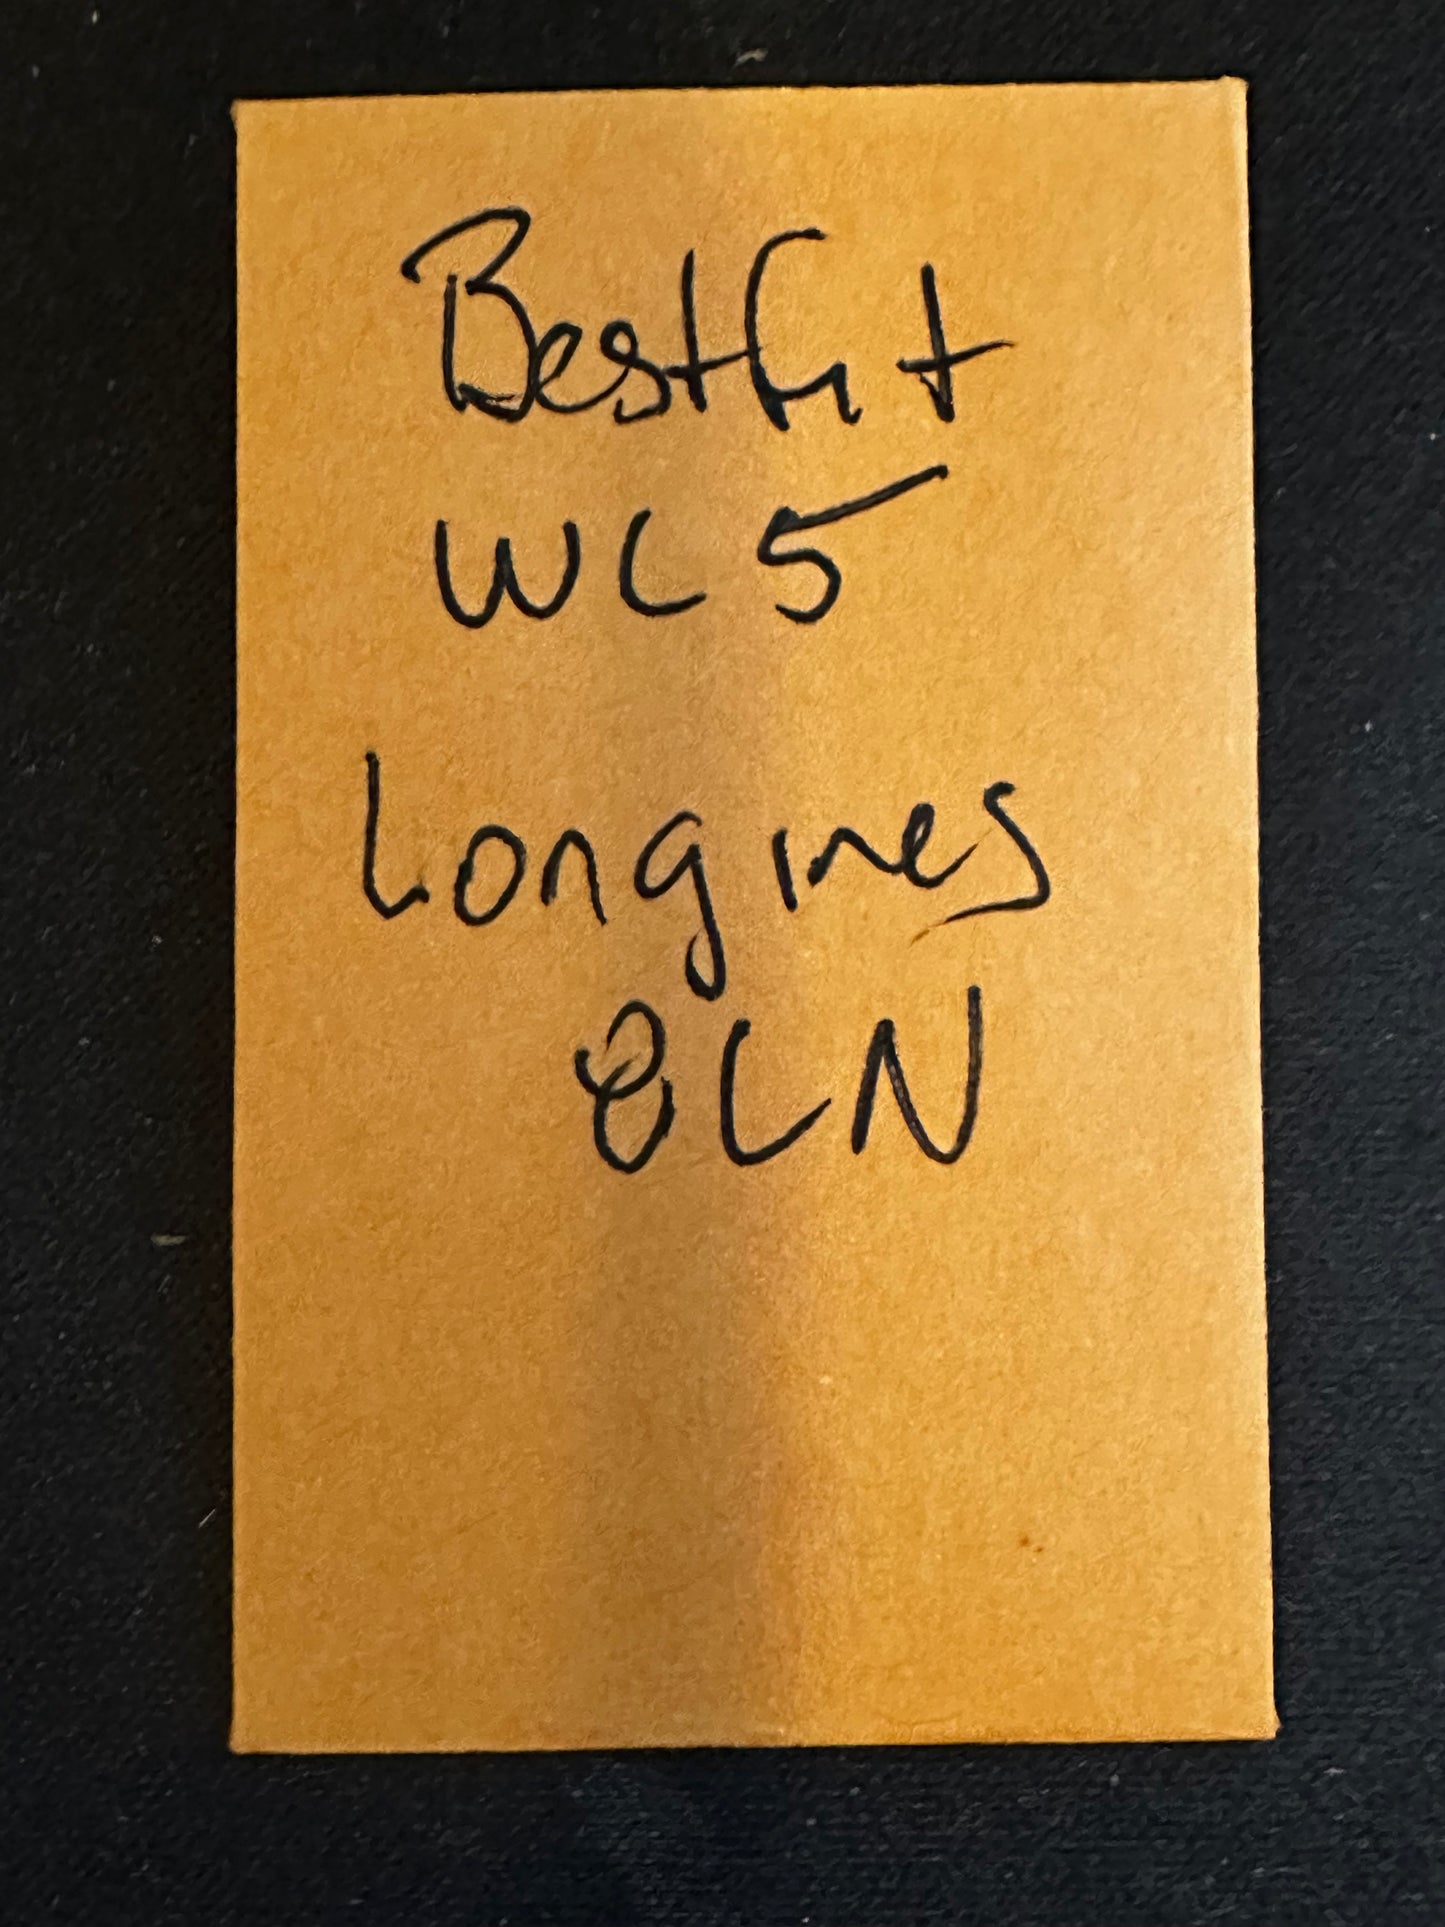 Bestfit
WC5
Longines
8LN